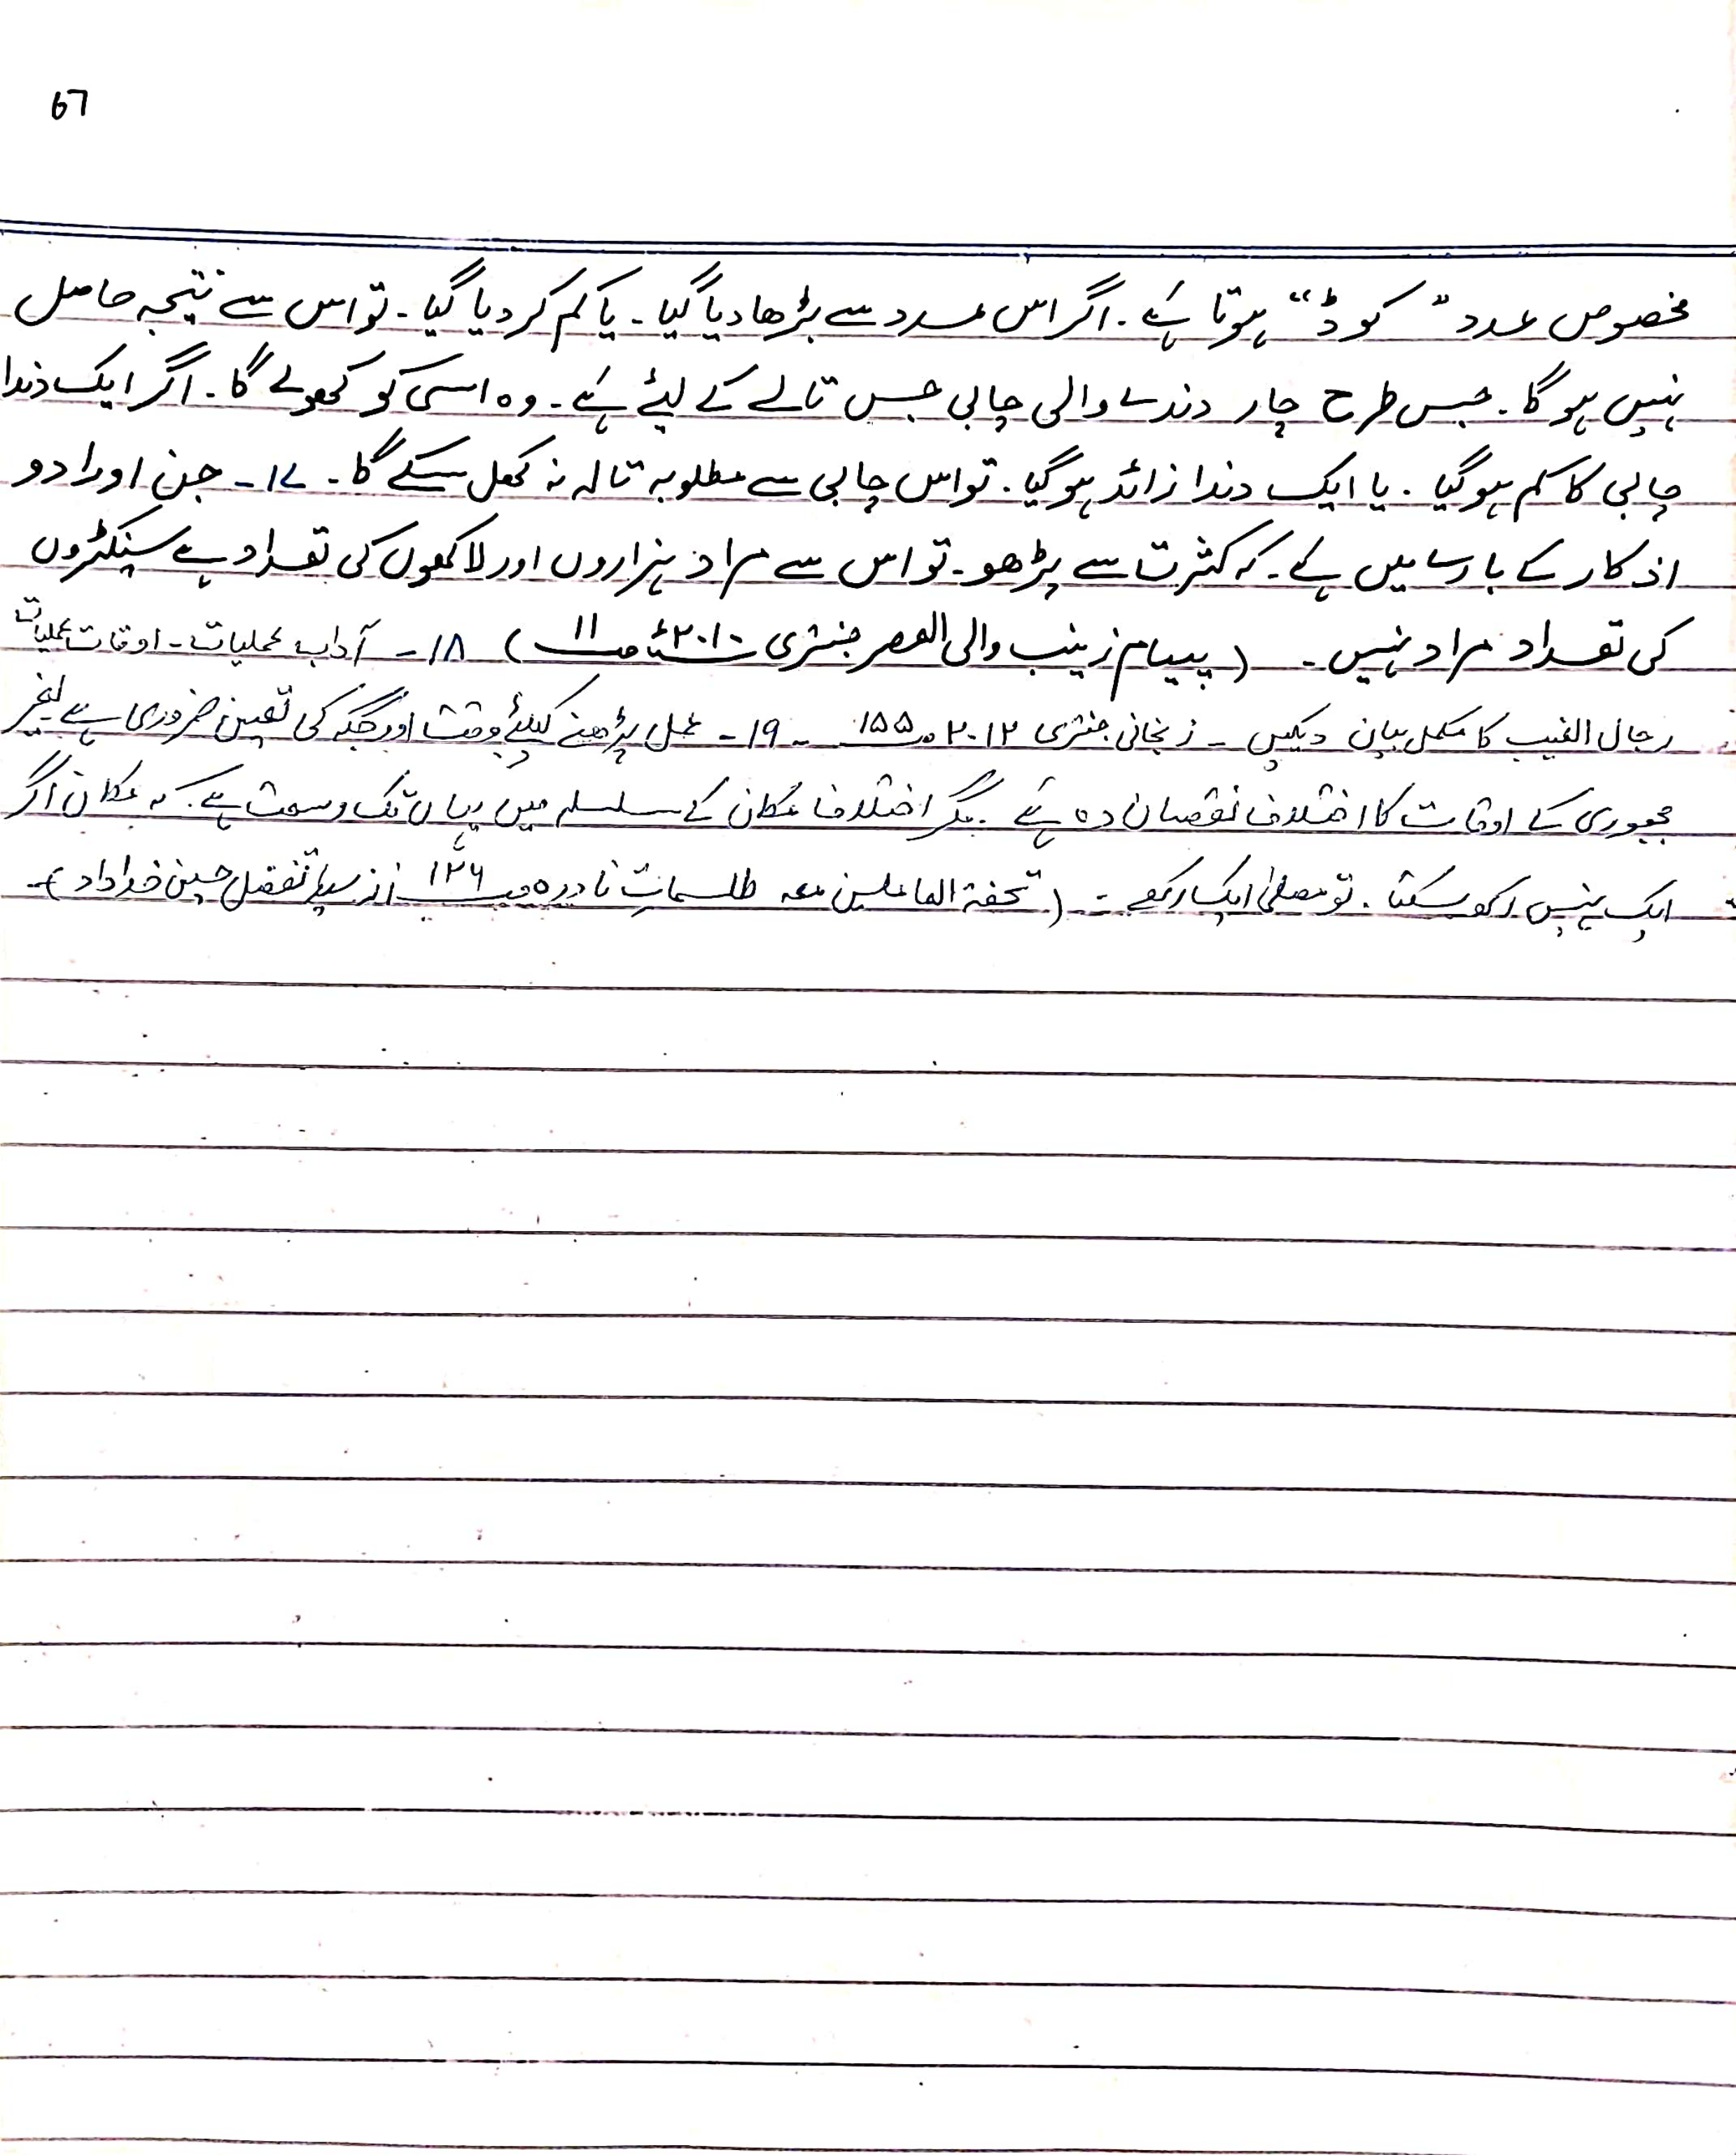 67
مخصوص عدد "کوڈ" ہوتا ہے۔ اگر اس عدد سے بڑھا دیا گیا۔ یا کم کر دیا گیا۔ تو اس سے نتیجہ حاصل
نہیں ہو گا۔ جس طرح چار دندے والی چابی جس تالے کے لیئے ہے۔ وہ اسی کو کھولے گا۔ اگر ایک دندا
چابی کا کم ہو گیا۔ یا ایک دندا زائد ہو گیا۔ تو اس چابی سے مطلوبہ تالہ نہ کھل سکے گا۔ ۱۷۔ جن اوراد و
اذکار کے بارے میں ہے۔ کہ کثرت سے پڑھو۔ تو اس سے مراد ہزاروں اور لاکھوں کی تعداد ہے سینکڑوں
کی تعداد مراد نہیں۔ (پیام زینب والی العصر جنتری ۲۰۱۰ء ص ۱۱) ۱۸۔ آداب عملیات۔ اوقات عملیات
رجال الغیب کا مکمل بیان دیکہیں۔ زنجانی جنتری ۲۰۱۲ ص ۱۵۵ ۔ ۱۹۔ عمل پڑھنے کیلئے وقت اور جگہ کی تعین ضروری ہے بغیر
مجبوری کے اوقات کا اختلاف نقصان دہ ہے۔ مگر اختلاف مکان کے سلسلہ میں یہاں تک وسعت ہے۔ کہ مکان اگر
ایک نہیں رکھ سکتا۔ تو مصلیٰ ایک رکھے۔ (تحفۃ العاملین معہ طلسمات نادرہ ص ۱۲۶ از سید تفضل حسین خداداد)۔